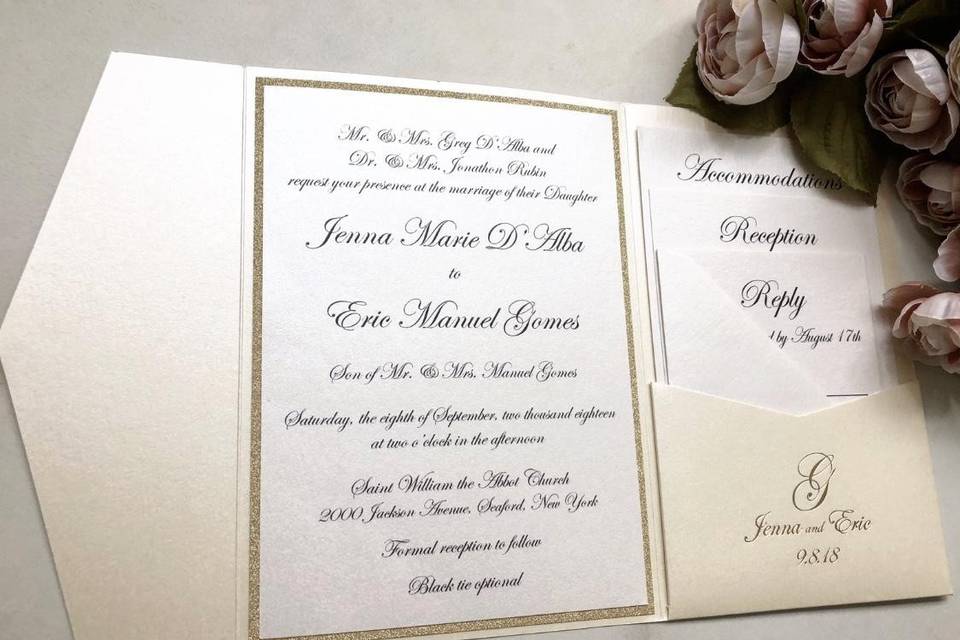 Mr. & Mrs. Greg D'Alba and
Dr. & Mrs. Jonathon Rubin
request your presence at the marriage of their Daughter
Jenna Marie D'Alba
to
Eric Manuel Gomes
Son of Mr. & Mrs. Manuel Gomes
Saturday, the eighth of September, two thousand eighteen
at two o'clock in the afternoon
Saint William the Abbot Church
2000 Jackson Avenue, Seaford, New York
Formal reception to follow
Black tie optional
Accommodations
Reception
Reply
by August 17th
G
Jenna and Eric
9.8.18